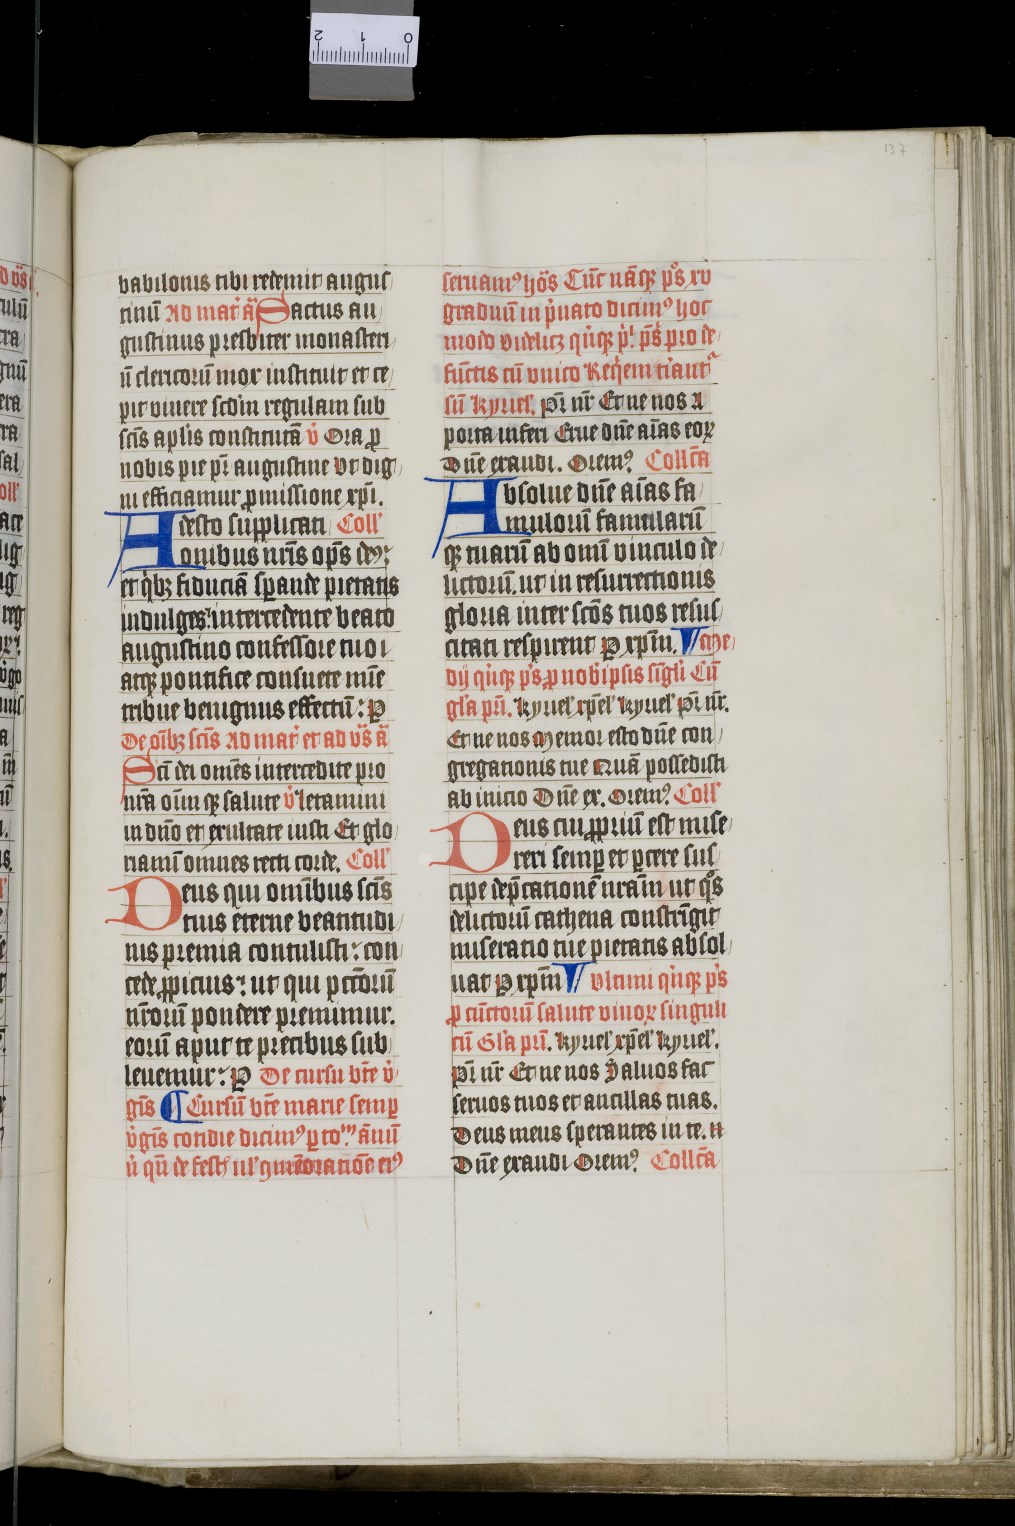 137
babilonis tibi redemit augus
tinū Ad mat̄ a᷑ Sactus au
gustinus presbiter monasteri
ū clericorū mox instituit et ce
pit viuere scd̄m regulam sub
scīs aplīs constitutā v̓ Ora ꝓ
nobis pie pr̄ augustine Vt dig
ni efficiamur ꝓmissione xp̄i.
Adesto supplicati Coll'
onibus nr̄is op̄s de9
et qͥbꝫ fiduciā sꝑande pietatis
indulges intercedente beato
augustino confessore tuo
atqꝫ pontifice consuete mīe
tribue benignus effectū: P
De oībꝫ scīs Ad mat̄ et ad vs̄ a᷑
Scī dei omēs intercedite pro
nr̄a oīm qꝫ salute v̓ letamini
in dn̄o et exultate iusti Et glo
riamī omnes recti corde. Coll'
Deus qui omībus scīs
tuis eterne beatitudi
nis premia contulisti: con
cede ꝓpicius: ut qui pctōrū
nr̄orū pondere premimur.
eorū aput te precibus sub
leuemur: P De cursu bt̄e v̓
gīs Cursū bt̄e marie semꝑ
v̓gīs cotidie dicim9 ꝑ to. ānū
seruam9 hōs Cūc nāqꝫ ps̄ xv
graduū in pͥuato dicim9 hoc
modo videlicꝫ qͥnqꝫ pͥ. ps̄ pro de
fūctis cū vnico Reqͥem
sū kyriel'. Pr̄ nr̄ Et ne nos A
porta inferi Erue dn̄e aīas eoꝝ
Dn̄e exaudi. Orem9 Collcā
Absolue dn̄e aīas fa
mulorū famularū
qꝫ tuarū ab omī vinculo de
lictorū. ut in resurrectionis
gloria inter scōs tuos resus
citati respirent P xpm̄. Me
dij qͥnqꝫ ps̄ ꝓ nobīpsis Cū
gl'a pr̄i. kyriel' xpēl' kyriel' Pr̄ nr̄.
Et ne nos Memor esto dn̄e con
gregationis tue Quā possedisti
ab inicio Dn̄e ex. Orem9 Coll'
Deus cui ꝓpriū est mise
reri semꝑ et ꝑcere sus
cipe dep̄cationē nrām ut qͦs
delictorū cathena constrīgit
miseratio tue pietatis absol
uat P xpm̄ Vltimi qͥnqꝫ ps̄
ꝓ cūctorū salute viuoꝝ singuli
cū Gl'a pr̄i. kyriel' xpēl' kyriel'.
Pr̄ nr̄ Et ne nos Saluos fac
seruos tuos et ancillas tuas.
Deus meus sperantes in te.
Dn̄e exaudi Orem9 Collcā